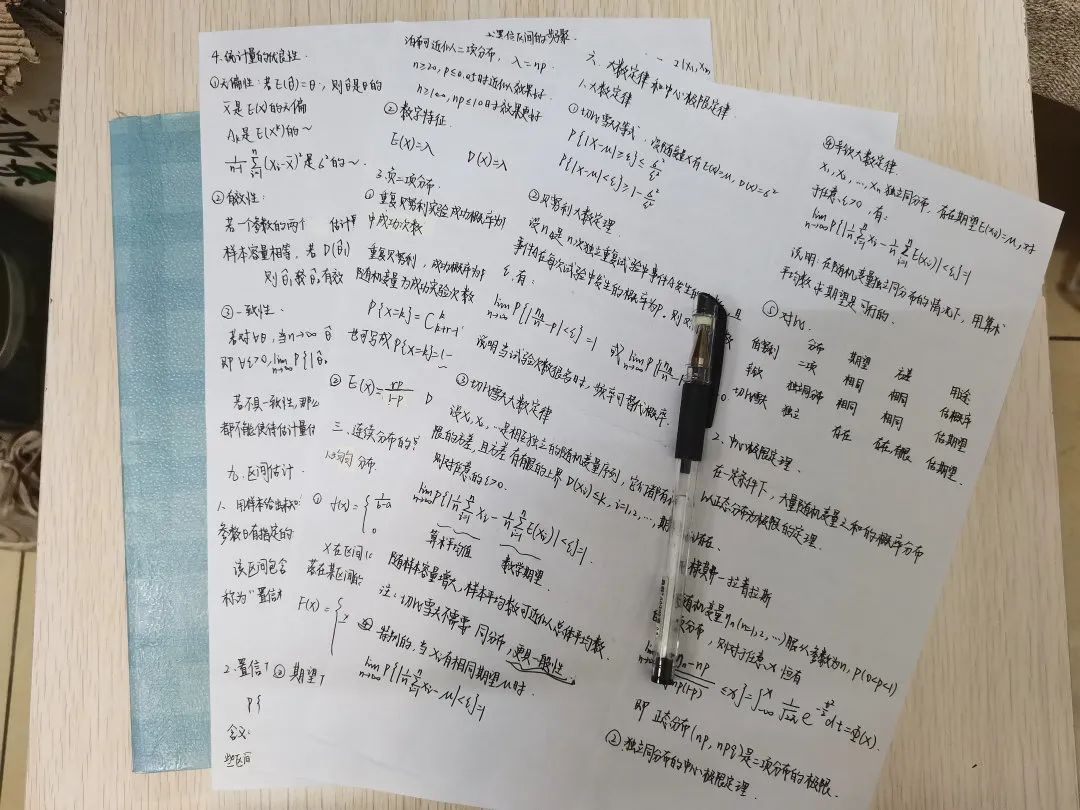 4.统计量的优良性.
①无偏性:若E(θ̂)=θ,则θ̂是θ的
X̄是E(X)的无偏
Aₖ是E(Xᵏ)的~
是σ²的~.
②有效性:
若一个参数的两个 估计量
样本容量相等,若D(θ̂₁)
则θ̂₁较θ̂₂有效
③一致性.
若对∀θ,当n→∞ θ̂
即∀ε>0, lim n→∞ P{|θ̂
若不具一致性,那么
都不能使得估计量估
九.区间估计.
1.用样本给出未知
参数θ有指定的
该区间包含
称为"置信
2.置信
P{
含义:
些区间
置信区间的步骤.
泊松可近似二项分布, λ=np.
n≥20, p≤0.05时近似效果好.
n≥100, np≤10时效果更好
②数字特征.
E(X)=λ D(X)=λ
3.负二项分布.
①重复贝努利实验成功概率为
中成功次数
重复贝努利,成功概率为P
随机变量为成功实验次数
P{X=k}=
也可写成P{X=k}=1-
②E(X)=rp/(1-p) D
三.连续分布的
1.均匀分布.
①f(x)={ 1/(b-a)
0
X在区间
落在某区间
F(x)={
②期望
2(X₁,Xₙ
六.大数定律和中心极限定律.
1.大数定律
①切比雪夫不等式:设随机变量X有E(X)=μ, D(X)=σ²
P{|X-μ|≥ε}≤σ²/ε²
P{|X-μ|<ε}≥1-σ²/ε²
②贝努利大数定理
设nA是n次独立重复试验中事件A发生的
事件A在每次试验中发生的概率为P.则对
ε,有:
lim n→∞ P{|nA/n-p|<ε}=1 或 lim n→∞ P{|nA/n-p
说明当试验次数很多时,频率可替代概率.
③切比雪夫大数定律
设X₁,X₂,…是相互独立的随机变量序列,它们都有
限的方差,且方差有有限的上界D(Xᵢ)≤k, i=1,2,…,
则对任意的ε>0.
lim n→∞ P{|1/n Σ(i=1→n) Xᵢ - 1/n Σ(i=1→n) E(Xᵢ)|<ε}=1
算术平均值 数学期望.
随样本容量增大,样本平均数可近似总体平均数.
注:切比雪夫不需要同分布,更具一般性.
④特别的,当Xᵢ有相同期望μ时.
lim n→∞ P{|1/n Σ(i=1→n) Xᵢ-μ|<ε}=1
④辛钦大数定律.
X₁,X₂,…,Xₙ独立同分布,存在期望E(Xᵢ)=μ,对
于任意ε>0,有:
lim n→∞ P{|1/n Σ(i=1→n) Xᵢ - 1/n Σ(i=1→n) E(Xᵢ)|<ε}=1
说明:在随机变量独立同分布的情况下,用算术
平均数 期望是可行的.
⑤对比.
分布 期望 方差 用途
伯努利 二项 相同 相同 估概率
辛钦 独立同分布 相同 相同 估期望
切比雪夫 独立 存在 存在,有限 估期望.
2.中心极限定理.
在一定条件下,大量随机变量之和的概率分布
以正态分布为极限的定理.
棣莫弗-拉普拉斯
随机变量ηₙ(n=1,2,…)服从参数为n, p(0<p<1)
分布,则对于任意x恒有
≤x}=∫(-∞→x) 1/√2π e^(-t²/2) dt=Φ(x).
即 正态分布(np, npq)是二项分布的极限.
②独立同分布的中心极限定理.